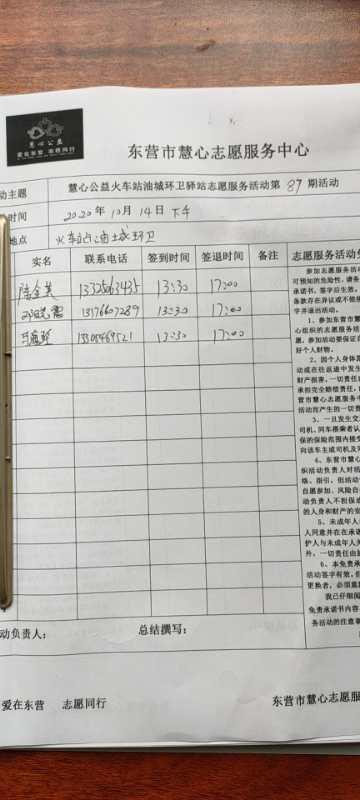 慧心公益
爱在东营 志愿同行
东营市慧心志愿服务中心
动主题 慧心公益火车站油城环卫驿站志愿服务活动第 87 期活动
时间 2020年10月14日下午
地点 火车站油城环卫
实名 联系电话 签到时间 签退时间 备注 志愿服务活动免
13:30 17:00
13176607289 13:30 17:00
13:30 17:00
参加志愿服务活
可预知的危险性，请务
承诺书，签字后生效，
备款存在异议或不能接
字并退出活动。
1、参加东营市慧
心组织的志愿服务活
愿，参加活动要保证在
好个人财物。
2、因个人身体原
动或在往返途中发生
财产损害，一切责任由
承担完全赔偿责任，
营市慧心志愿服务中
活动而产生的一切责
3、一旦发生交
司机、同车搭乘者认
保的保险范围内接受
向该车主或司机及
4、东营市慧心
织活动负责人对活
络、指引，但活动
自愿参加、风险自
动负责人不担保成
的人身和财产的安
5、未成年人
人同意并在在承诺
护人与未成年人关
外，一切责任由
6、本免责承
活动签字有效，但
更换者，必须重
我已仔细阅
免责承诺书内容
务活动的注意事
动负责人： 总结撰写：
爱在东营 志愿同行 东营市慧心志愿服